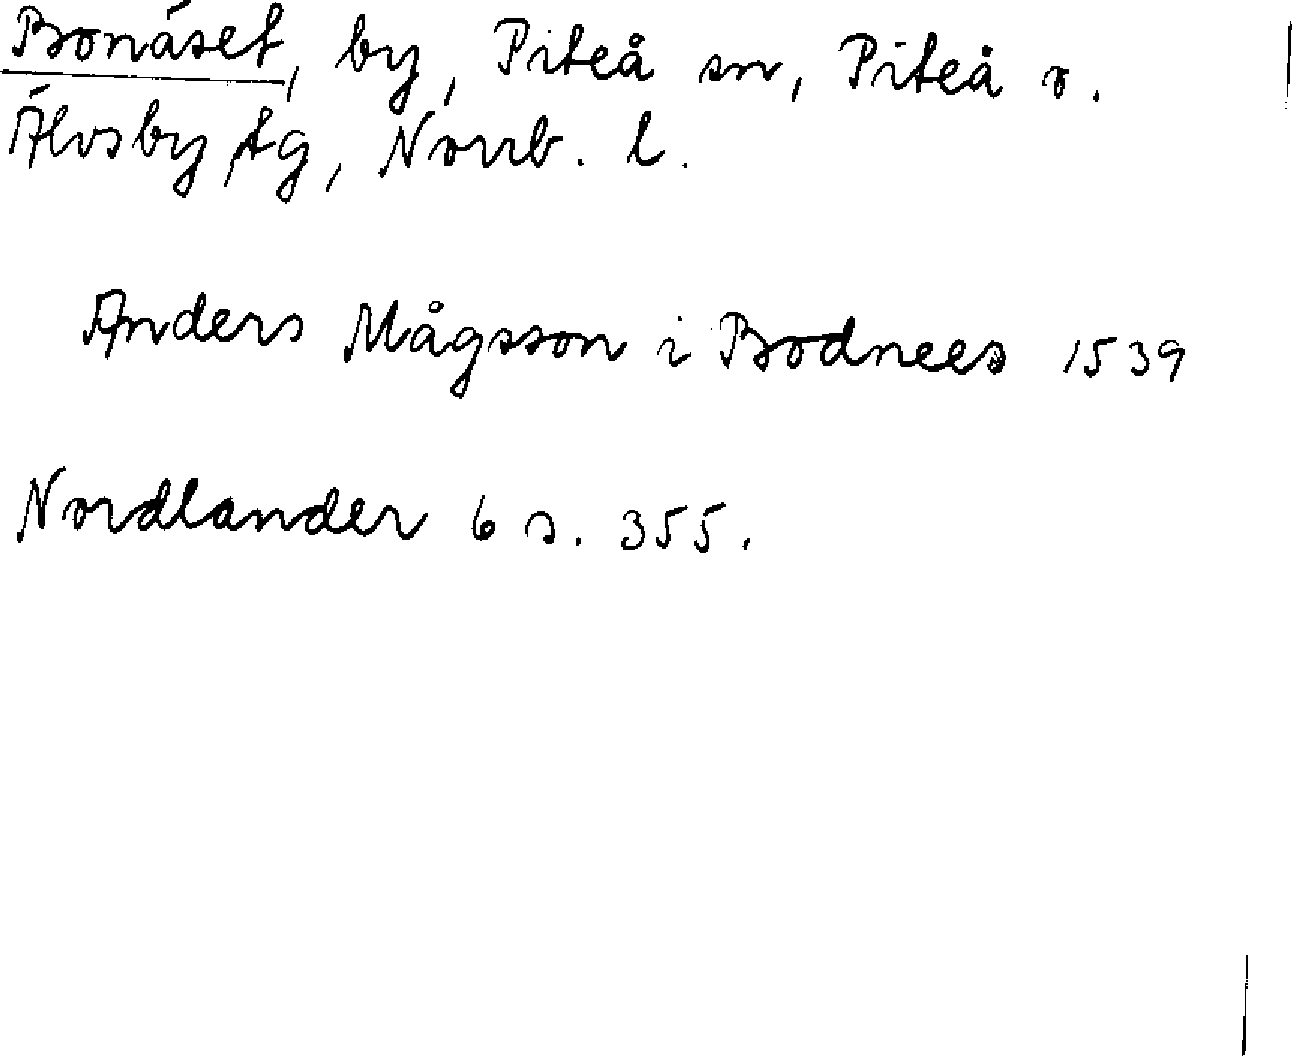 Bonäset, by, Piteå sn, Piteå o.
Älvsby tg, Norrb. l.
Anders Mågsson i Bodnees 1539
Nordlander 6 s. 355.